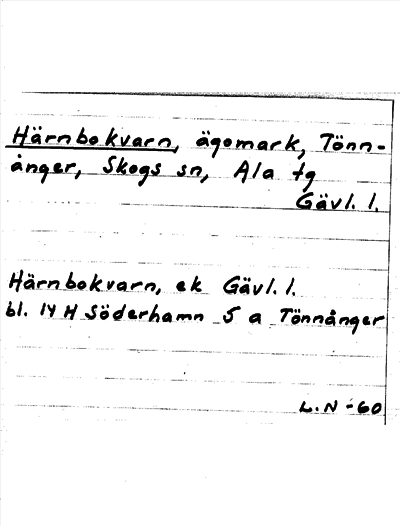 Härnbokvarn, ägomark, Tönn-
ånger, Skogs sn, Ala tg
Gävl. l.
Härnbokvarn, ek Gävl. l.
bl. 14 H Söderhamn 5 a Tönnånger
L.N -60